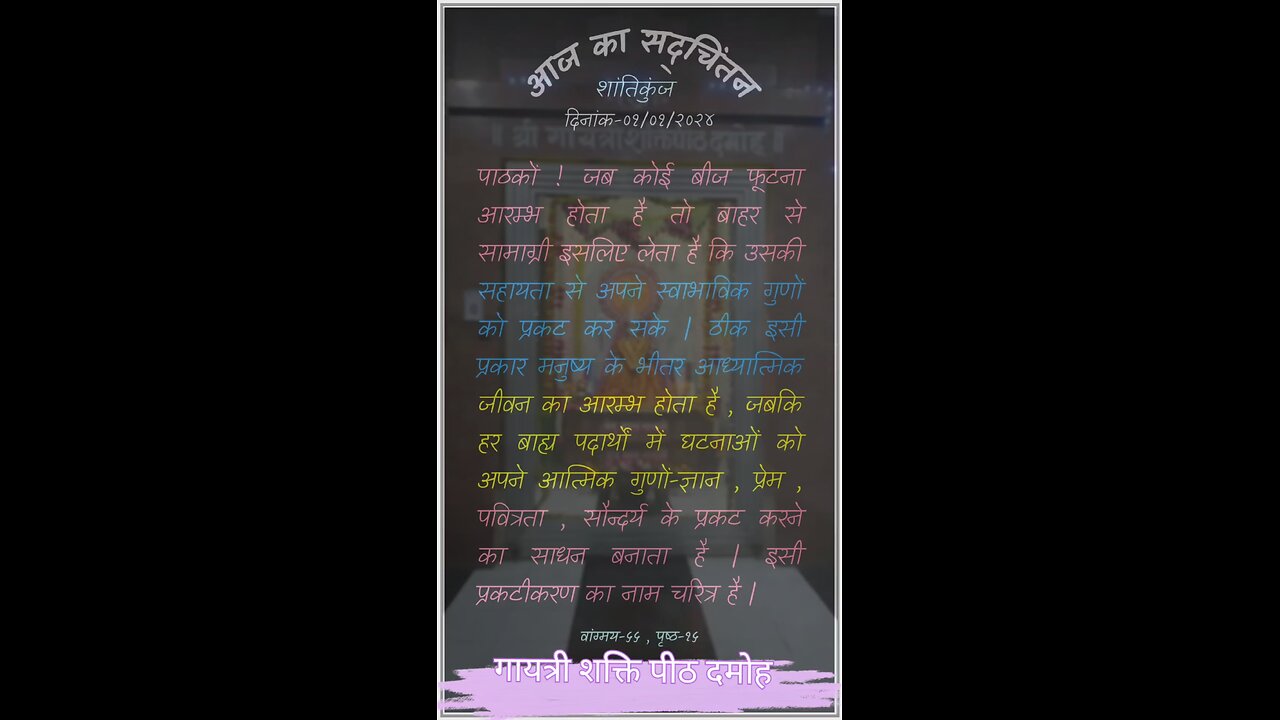 आज का सद्चिंतन
शांतिकुंज
दिनांक-०१/०१/२०२४
॥ श्री गायत्री शक्तिपीठ दमोह ॥
पाठकों ! जब कोई बीज फूटना
आरम्भ होता है तो बाहर से
सामाग्री इसलिए लेता है कि उसकी
सहायता से अपने स्वाभाविक गुणों
को प्रकट कर सके | ठीक इसी
प्रकार मनुष्य के भीतर आध्यात्मिक
जीवन का आरम्भ होता है , जबकि
हर बाह्य पदार्थों में घटनाओं को
अपने आत्मिक गुणों-ज्ञान , प्रेम ,
पवित्रता , सौन्दर्य के प्रकट करने
का साधन बनाता है | इसी
प्रकटीकरण का नाम चरित्र है |
वांग्मय-६६ , पृष्ठ-१६
गायत्री शक्ति पीठ दमोह